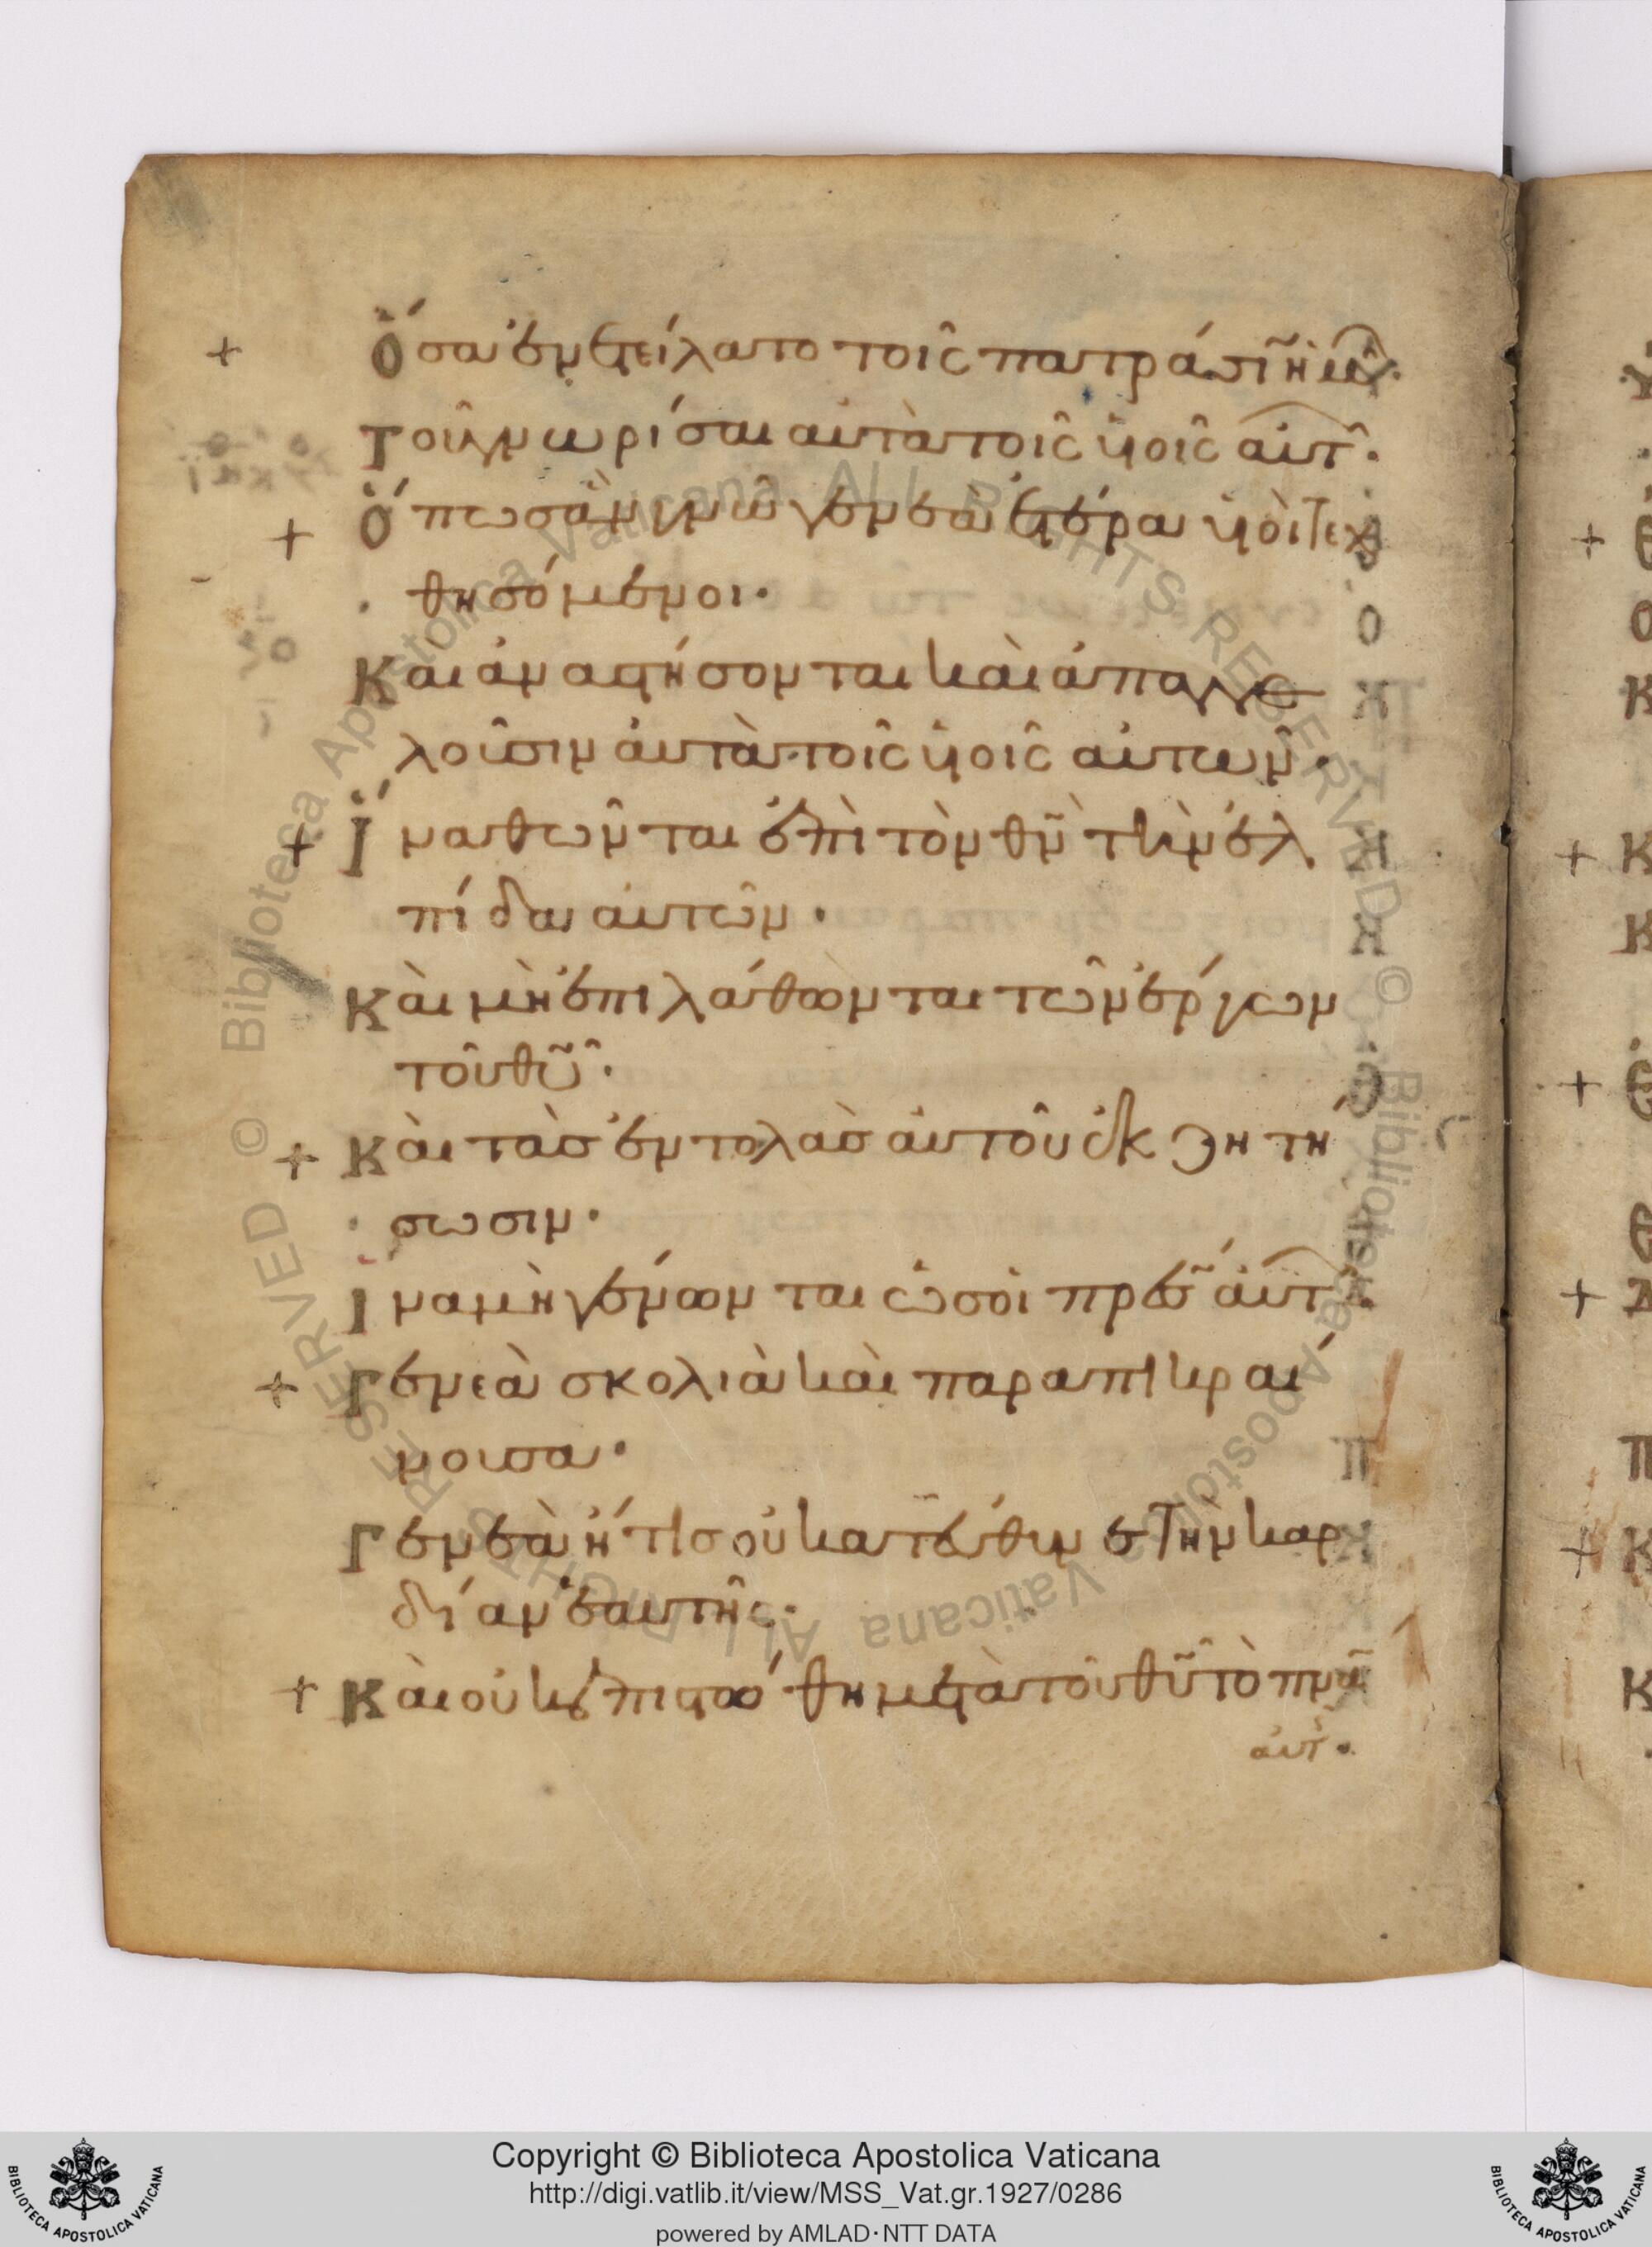 + Ὅσα ἐνετείλατο τοῖς πατράσιν ἡμῶν·
Τοῦ γνωρίσαι αὐτὰ τοῖς υἱοῖς αὐτῶν·
+ Ὅπωσ ἂν γνῶ γενεὰ ἑτέρα υἱοὶ τεχ
θησόμενοι·
Καὶ ἀναστήσονται καὶ ἀπαγγε
λοῦσιν αὐτὰ τοῖς υἱοῖς αὐτῶν·
+ Ἵνα θῶνται ἐπὶ τὸν θν τὴν ἐλ
πίδα αὐτῶν·
Καὶ μὴ ἐπιλάθωνται τῶν ἔργων
τοῦ θυ·
+ Καὶ τὰσ ἐντολὰσ αὐτοῦ ἐκζητή
σωσιν·
Ἵνα μὴ γένωνται ὡσ οἱ πρεσ αὐτῶν·
+ Γενεὰ σκολιὰ καὶ παραπικραί
νουσα·
Γενεὰ ἥτισ οὐ κατεύθυνε τὴν καρ
δίαν ἑαυτῆς·
+ Καὶ οὐκ ἐπιστώθη μετὰ τοῦ θυ τὸ πνα
αὐτῆς·
Copyright © Biblioteca Apostolica Vaticana
http://digi.vatlib.it/view/MSS_Vat.gr.1927/0286
powered by AMLAD·NTT DATA